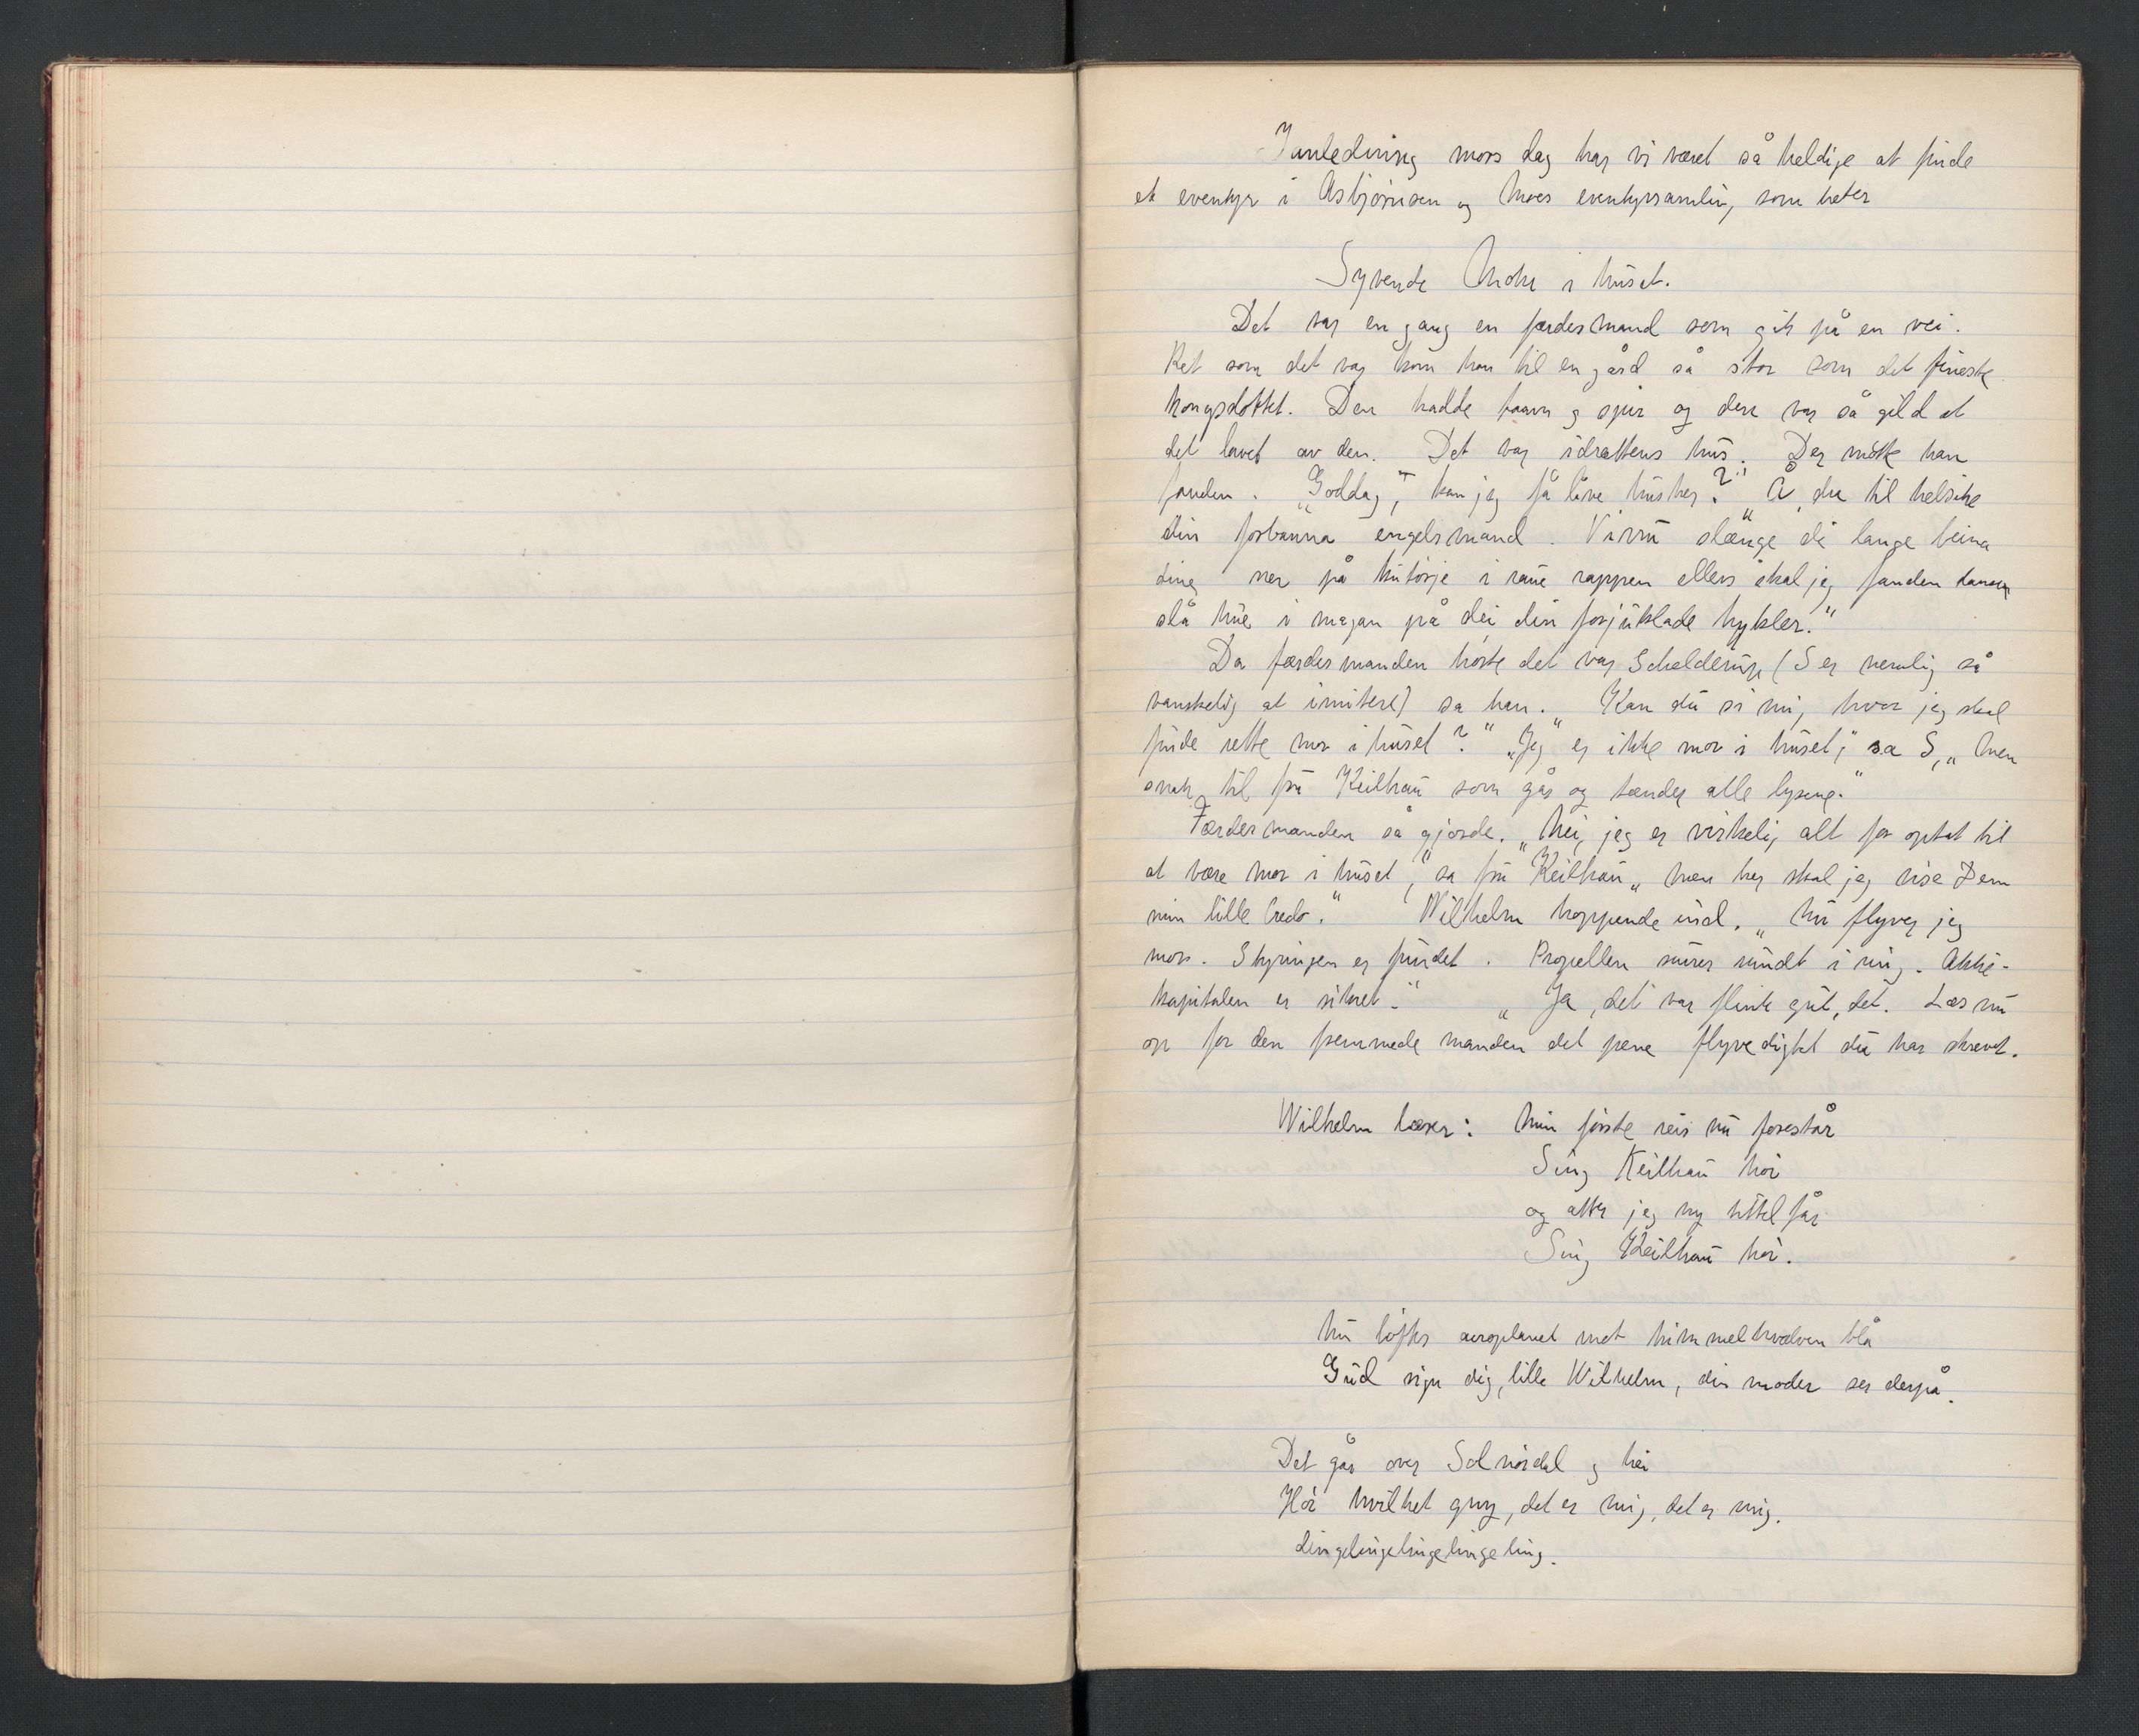 I anledning mors dag har vi været så heldige at finde
et eventyr i Asbjørnsen og Moes eventyrsamling, som heter
Syvende Mohr i huset.
Det var en gang en færdesmand som gik på en vei.
Ret som det var kom han til en gård så stor som det fineste
kongsslottet. Den hadde taarn og spir og den var så gild at
det lavet av den. Det var idrættens hus. Der møtte han
fanden. "Goddag", kan jeg få låne hus her?" "Å, du til helsike
din forbanna engelsmand. Vinnu slænge di lange beina
dine ner på hutorje i raue rappen ellers skal jeg fanden
slå hue i magan på dei din forjuklade hykler."
Da færdesmanden hørte det var Schelderup (S er nemlig så
vanskelig at imitere) sa han. Kan du si mig hvor jeg skal
finde rette mor i huset?" "Jeg er ikke mor i huset," sa S, "Men
snak til fru Keilhau som går og tænder alle lysene."
Færdesmanden så gjorde. "Nei, jeg er virkelig alt for optat til
at være mor i huset," sa fru Keilhau, "men her skal jeg vise Dem
min lille Credo." Wilhelm hoppende ind. "Nu flyver jeg
mor. Styringen er fundet. Propellen surrer rundt i ring. Aktie-
kapitalen er sikret." "Ja, det var flink gut, det. Læs nu
op for den fremmede manden det pene flyvedigtet du har skrevet.
Wilhelm læser: Min første reis nu forestår
Sing Keilhau hoi
og atter jeg ny tittel får
Sing Keilhau hoi.
Nu løftes aeroplanet mot himmelhvælven blå
Gud signe dig, lille Wilhelm, din moder ser derpå.
Det går over Solnørdal og hei
Hør hvilket gny, det er mig, det er mig.
Lingelingelingelingeling.